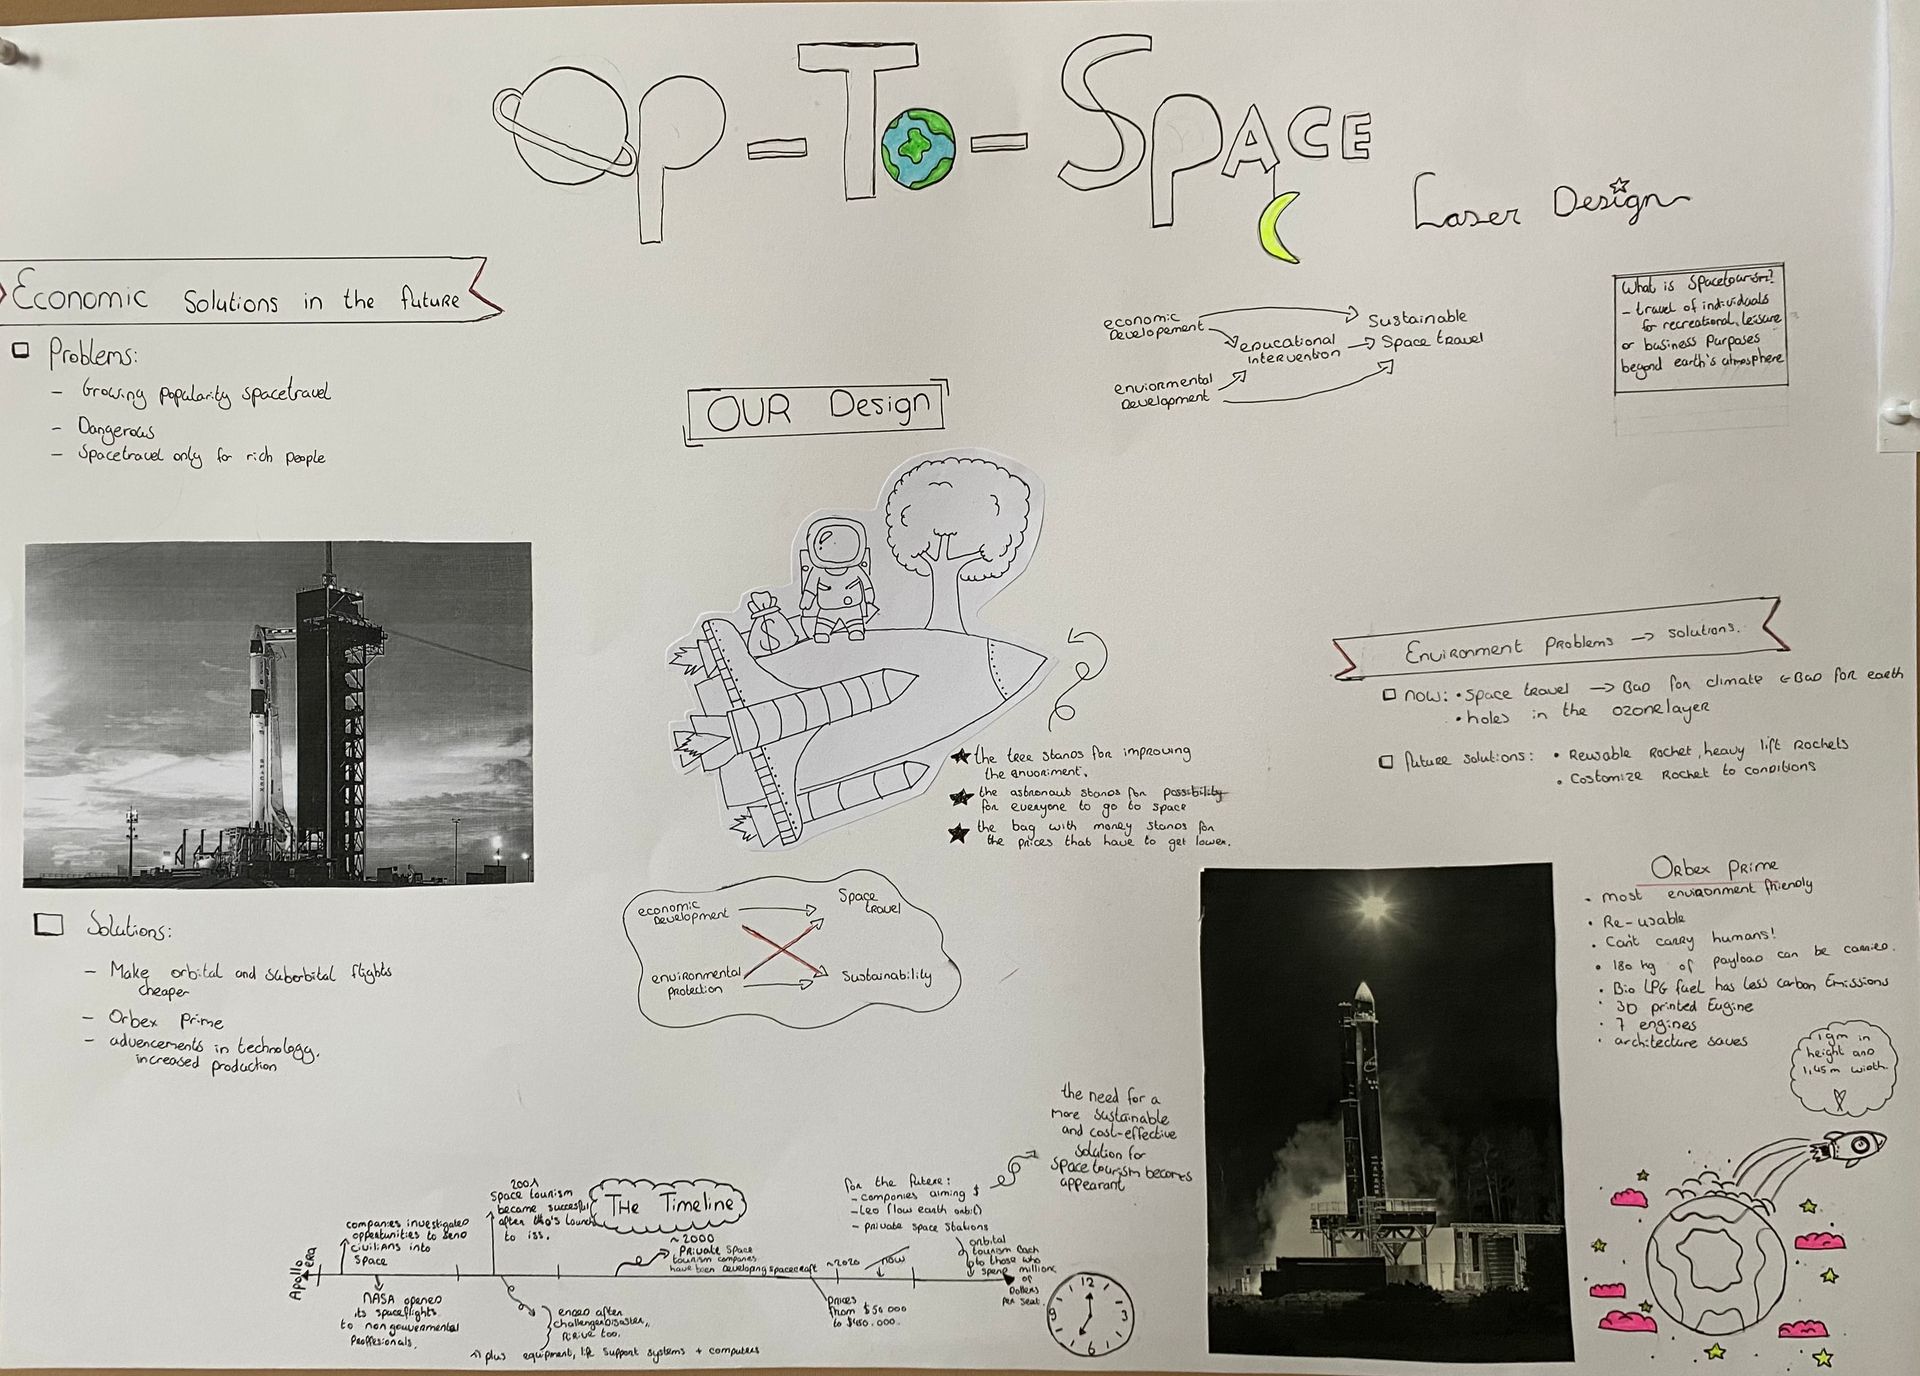 Op-To-Space
Laser Design
Economic Solutions in the future
Problems:
- Growing popularity spacetravel
- Dangerous
- Spacetravel only for rich people
economic
Developement
enviormental
Development
educational
intervention
Sustainable
Space travel
What is Spacetourism?
- travel of individuals
for recreational, leisure
or business purposes
beyond earth's atmosphere
OUR Design
$
the tree stands for improving
the enuoriment.
the astronaut stands for possibility
for everyone to go to space
the bag with money stands for
the prices that have to get lower.
Environment Problems → solutions.
now: • Space travel → Bad for climate & Bad for earth
• holes in the ozonelayer
future solutions: • Reusable Rocket, heavy lift rockets
• Costomize Rocket to conditions
Solutions:
- Make orbital and suborbital flights
cheaper
- Orbex Prime
- advencements in technology,
increased production
economic
Development
Space
travel
environmental
protection
Sustainability
Orbex Prime
• most environment friendly
• Re-usable
• Can't carry humans!
• 180 kg of payload can be carried.
• Bio LPG fuel has less carbon Emissions
• 3D printed Engine
• 7 engines
• architecture saves
19m in
height and
1,45m width.
the need for a
more sustainable
and cost-effective
solution for
space tourism becomes
appearant
THe Timeline
Apollo
era
companies investigated
oppertunities to send
civilians into
space
NASA opened
its spaceflights
to non gouvernmental
proffesionals.
2001
Space tourism
became succesful
after launch
to iss.
ended after
challenger disaster,
too.
plus equipment, life support systems + computers
~2000
Private Space
tourism companies
have been developing spacecraft
~2020
now
prices
from $50 000
to $450.000.
for the future:
- companies aiming $
- Leo (low earth orbit)
- private space stations
orbital
tourism
to those who
spend millions
of
Dollars
per seat.
12
3
6
9